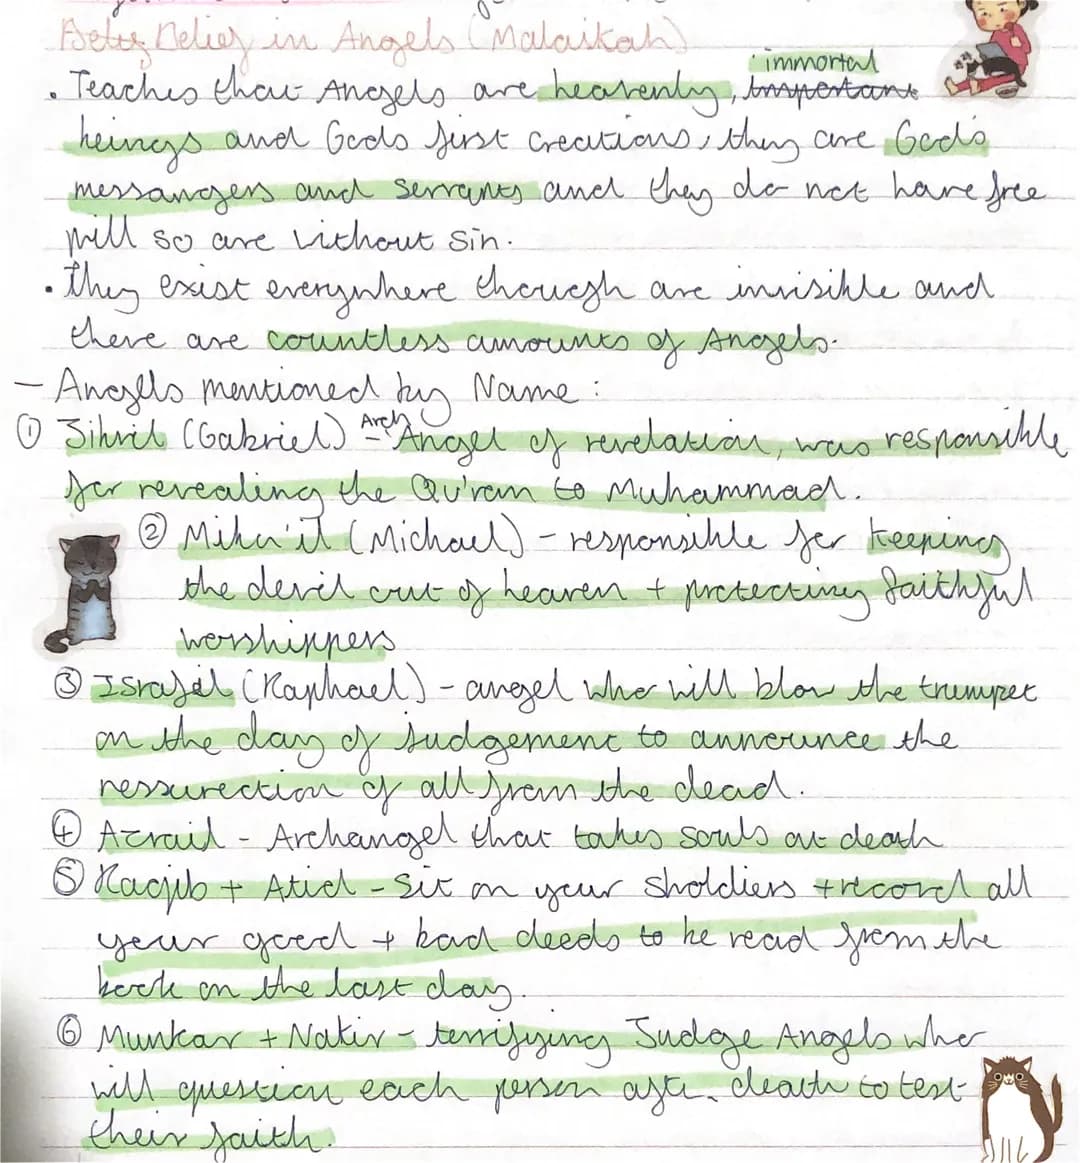 Belief in Angels (Malaikah)
immortal
• Teaches that Angels are heavenly, important
beings and Gods first creations, they are God's
messangers and servants and they do not have free
will so are without sin.
• They exist everywhere though are invisible and
there are countless amounts of Angels.
- Angels mentioned by Name:
① Jibril (Gabriel) - Arch Angel of revelation, was responsible
for revealing the Qu'ran to Muhammad.
② Mika'il (Michael) - responsible for keeping
the devil out of heaven + protecting faithful
worshippers
③ Israfil (Raphael) - angel who will blow the trumpet
on the day of judgement to announce the
ressurection of all from the dead.
④ Azrail - Archangel that takes souls at death
⑤ Raqib + Atid - Sit on your sholdiers + record all
your good + bad deeds to be read from the
book on the last day.
⑥ Munkar + Nakir - terrifying Judge Angels who
will question each person after death to test
their faith.